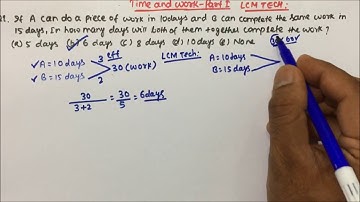 Time and Work-Part I LCM TECH:
If A can do a piece of work in 10days and B can complete the same work in
15 days, In how many days will both of them together complete the work?
(a) 5 days (b) 6 days (c) 8 days (d) 10 days (e) None
eff
A=10days 3
30(work) LCM TECH:
B=15days 2
A=10days
B=15days
30/3+2 = 30/5 = 6days